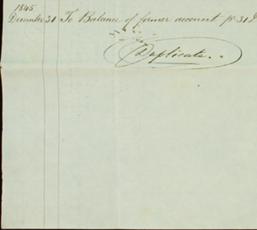 1845
December 31 To Balance of former account pr 31
Duplicate.